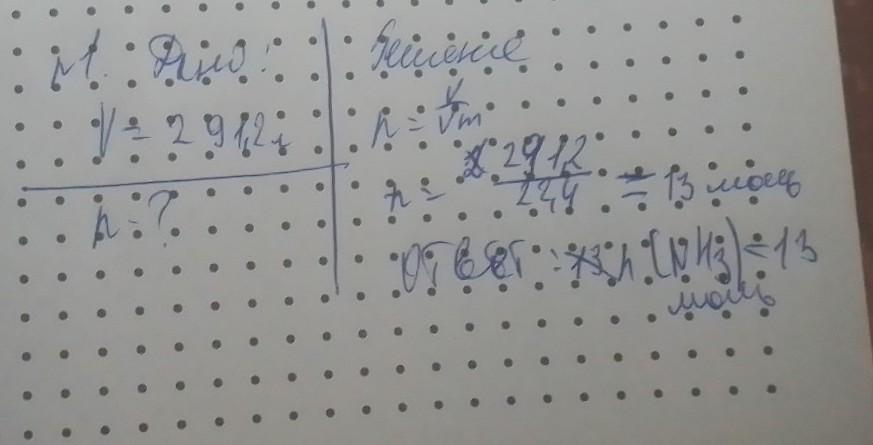 №1. Дано:
V = 291,2 л
n - ?
Решение
n = V/Vm
n = 291,2/22,4 = 13 моль
Ответ: n(NH3) = 13
моль